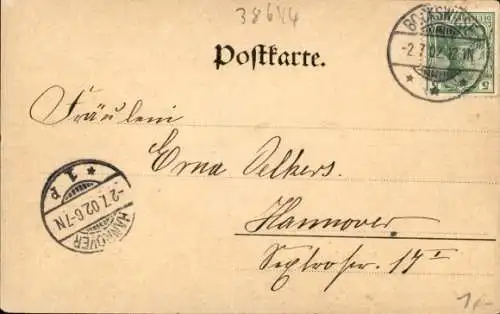 38644
Postkarte.
-2.7.02.12-1N
Fräulein
Erna Oelkers.
Hannover.
17 I
HANNOVER
-2.7.02.6-7N
* 1 P
1,-